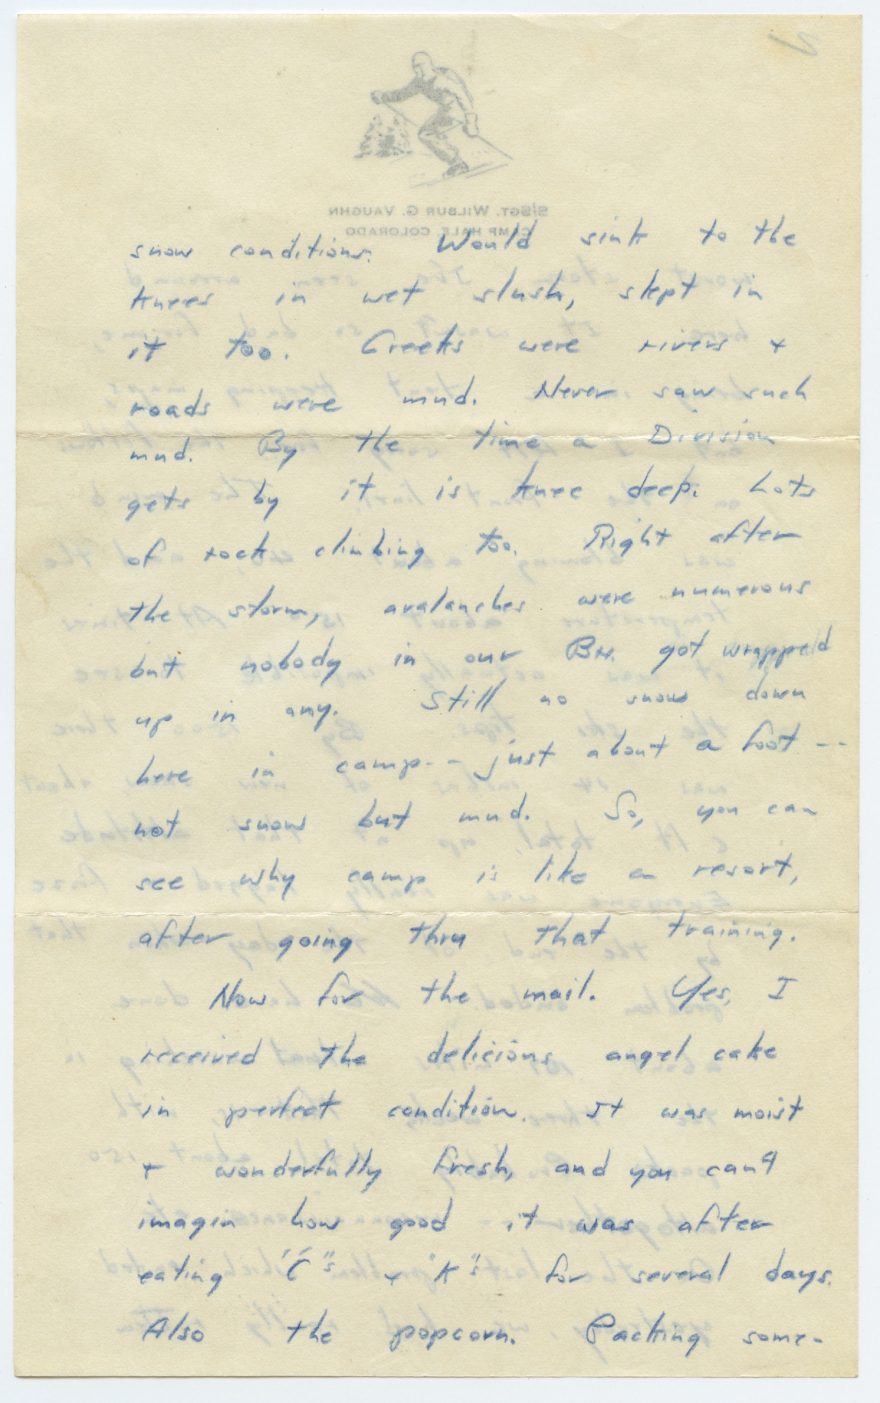 2
S/SGT. WILBUR G. VAUGHN
CAMP HALE, COLORADO
snow conditions. Would sink to the
knees in wet slush, slept in
it too. Creeks were rivers +
roads were mud. Never saw such
mud. By the time a Division
gets by it is knee deep. Lots
of rock climbing too. Right after
the storm, avalanches were numerous
but nobody in our Bn. got wrapped
up in any. Still no snow down
here in camp -- just about a foot --
not snow but mud. So, you can
see why camp is like a resort,
after going thru that training.
Now for the mail. Yes, I
received the delicious angel cake
in perfect condition. It was moist
+ wonderfully fresh, and you can't
imagin how good it was after
eating "C"s + "K"s for several days.
Also the popcorn. Packing some-